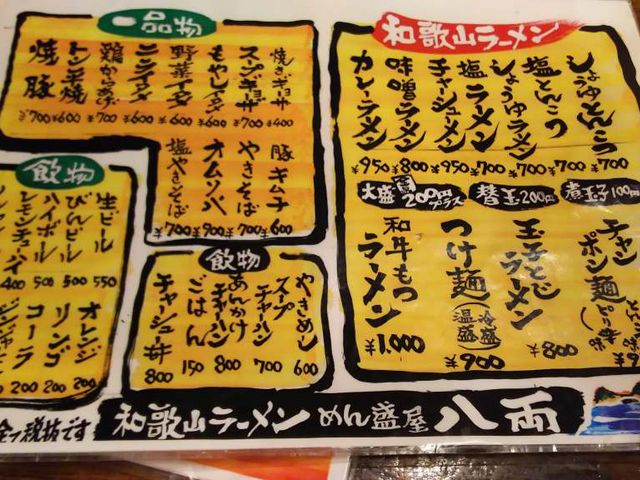 一品物
焼きギョーザ ¥400
スープギョーザ ¥700
もやしイタメ ¥600
野菜イタメ ¥600
ニンニクイタメ ¥600
鶏からあげ ¥700
トン平焼 ¥600
焼豚 ¥700
豚キムチ 600
やきそば ¥700
オムソバ ¥900
塩やきそば ¥700
和歌山ラーメン
しょうゆとんこつ ¥700
塩とんこつ ¥700
しょうゆラーメン ¥700
塩ラーメン ¥700
チャーシューメン ¥950
味噌ラーメン ¥800
カレーラーメン ¥950
大盛 200円プラス
替玉200円
煮玉子100円
チャンポン麺
玉子とじラーメン ¥800
つけ麺(冷盛 温盛) ¥900
和牛もつラーメン ¥1,000
飲物
生ビール 550
びんビール 500
ハイボール 500
レモンチューハイ 400
オレンジ 200
リンゴ 200
コーラ 200
飲物
やきめし 600
スープチャーハン 700
あんかけチャーハン 800
ごはん 150
チャーシュー丼 800
全て税抜です
和歌山ラーメン めん盛屋 八両